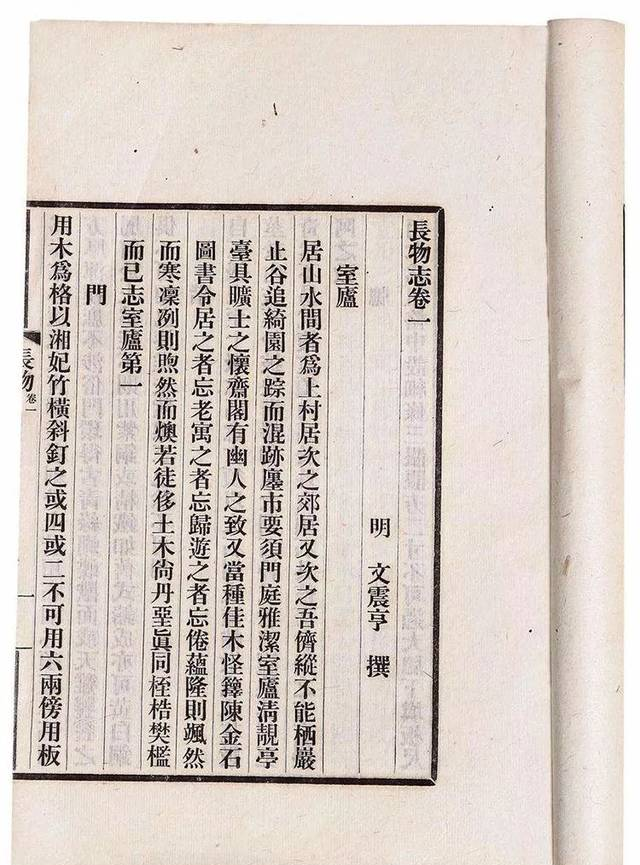 長物志卷一
明 文震亨 撰
室廬
居山水間者爲上村居次之郊居又次之吾儕縱不能栖巖
止谷追綺園之踪而混跡廛市要須門庭雅潔室廬淸靚亭
臺具曠士之懷齋閣有幽人之致又當種佳木怪籜陳金石
圖書令居之者忘老寓之者忘歸遊之者忘倦蘊隆則颯然
而寒凜冽則煦然而燠若徒侈土木尙丹堊眞同桎梏樊檻
而已志室廬第一
門
用木爲格以湘妃竹橫斜釘之或四或二不可用六兩傍用板
長物 卷一
一